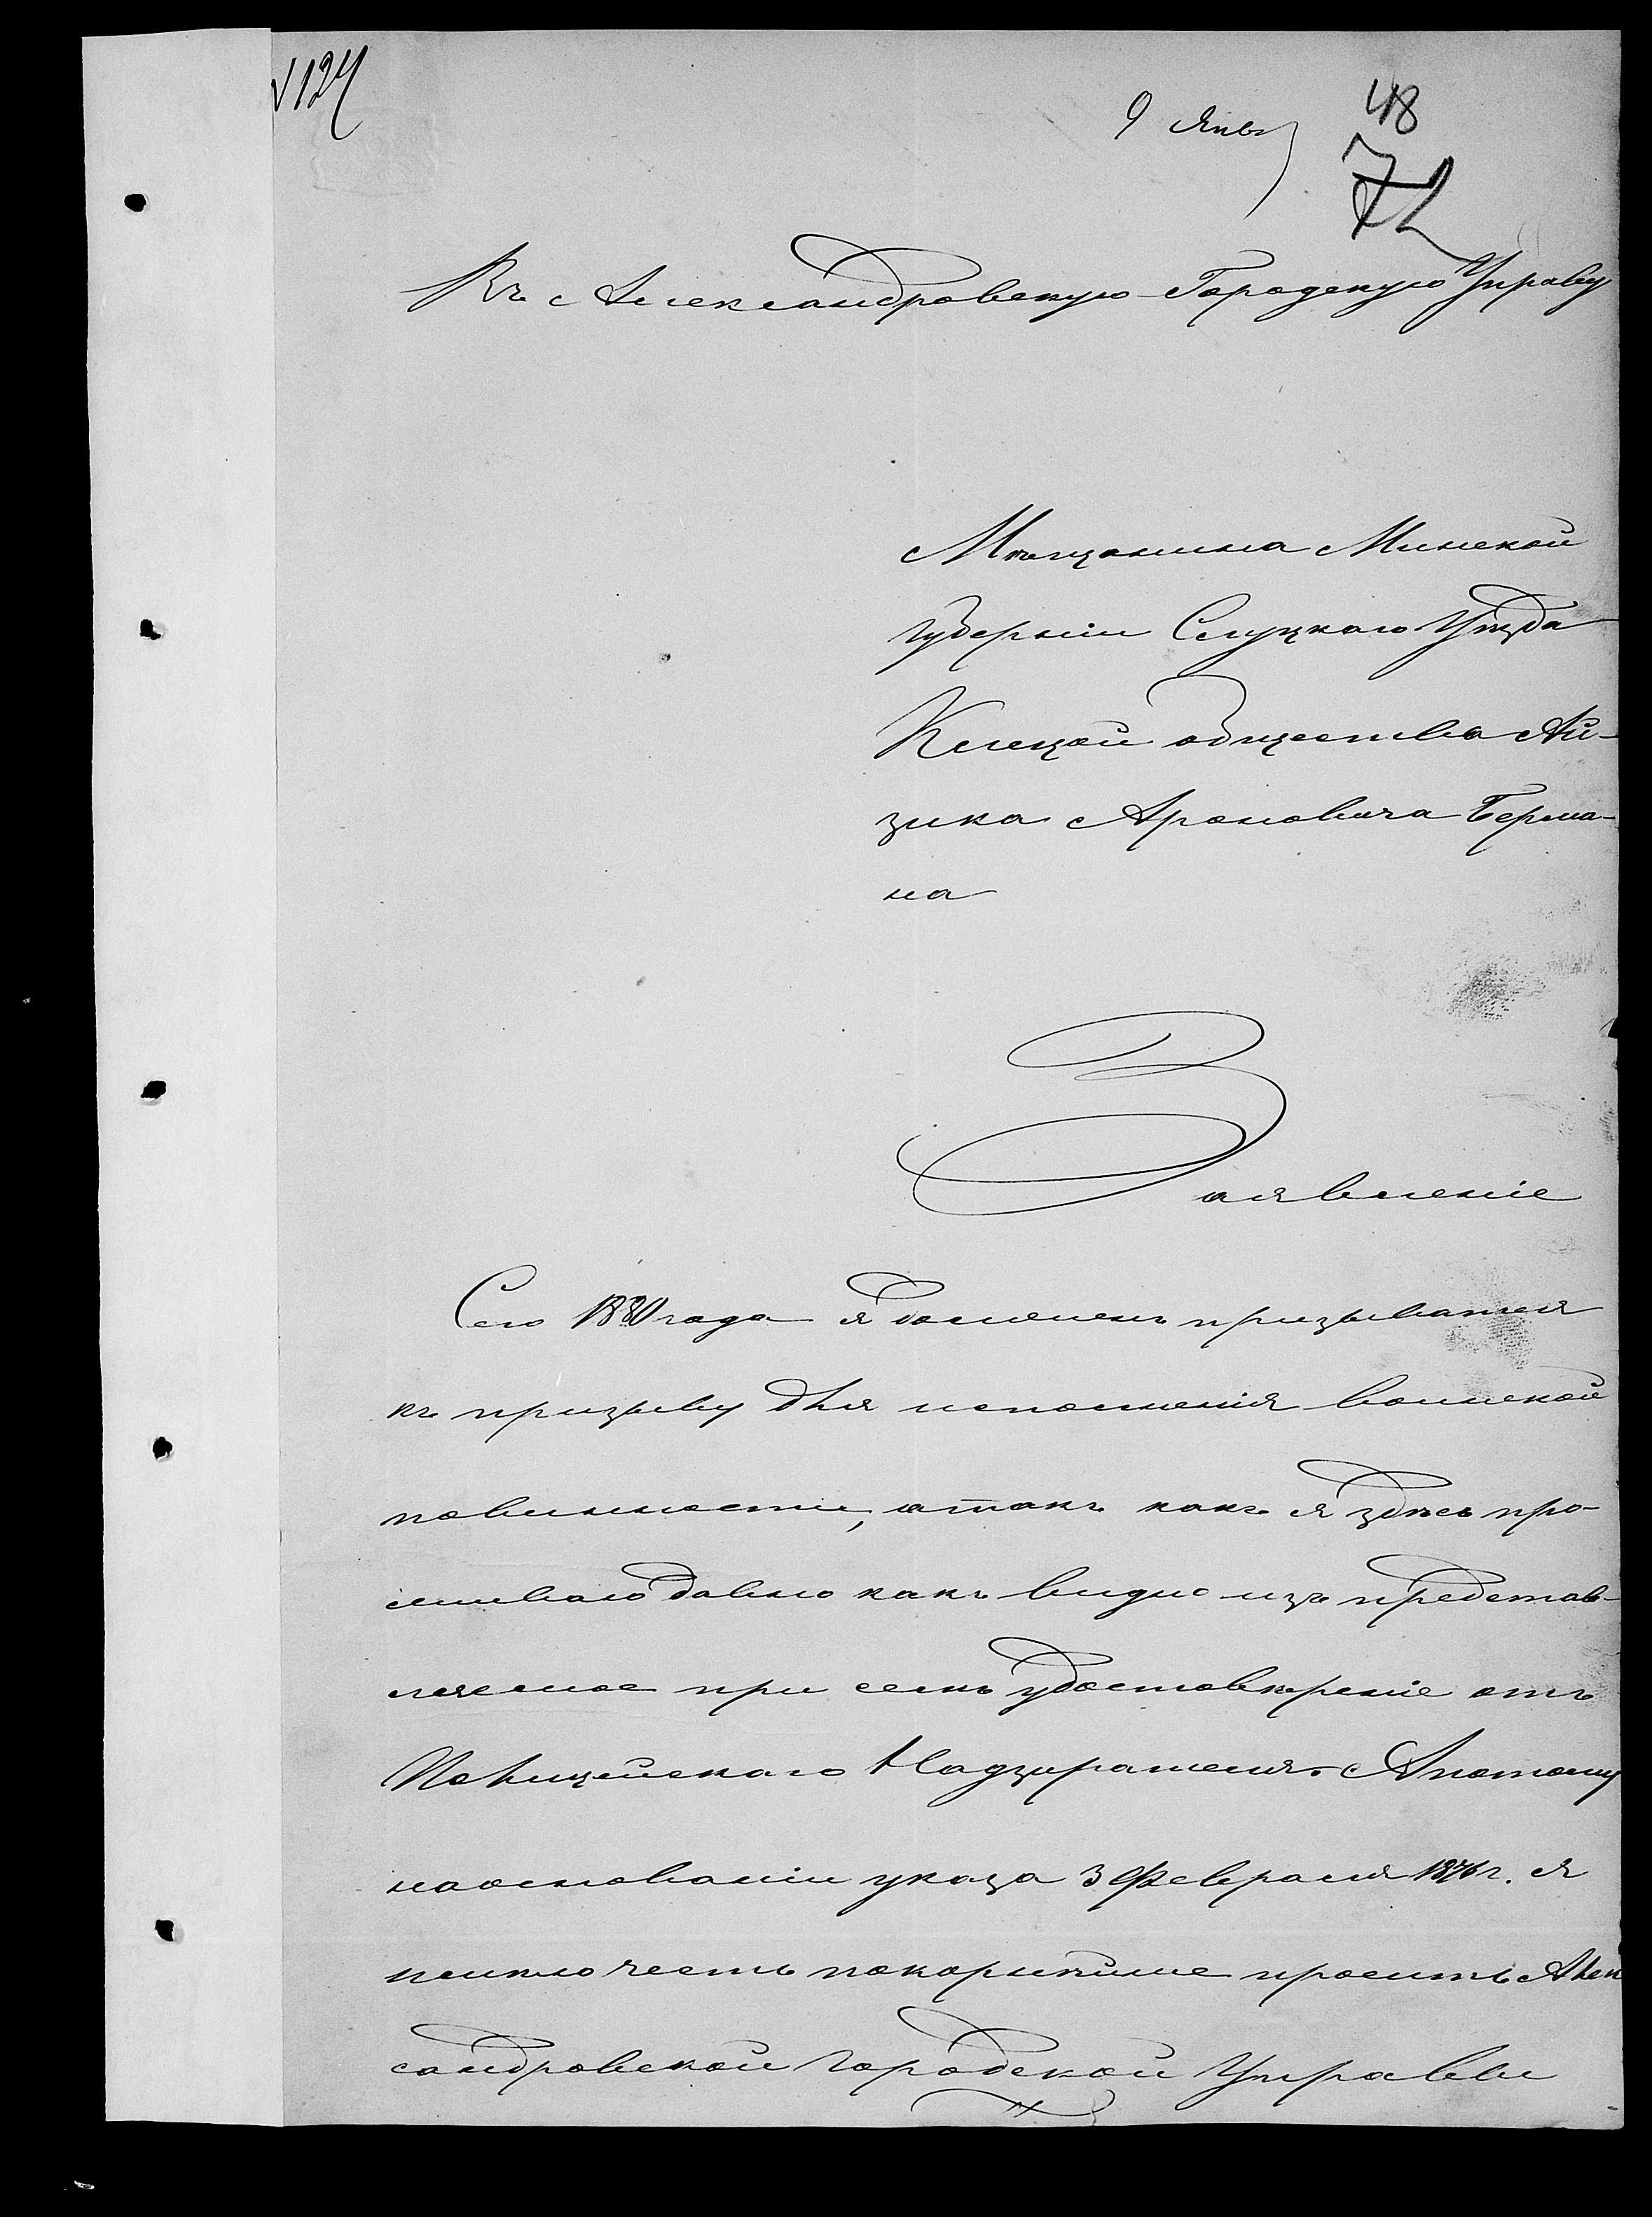 № 124
9 Янв
48
72
Въ Александровскую Городскую Управу
Мѣщанина Минской
губерніи Слуцкаго Уѣзда
Клецкой общества Ай-
зика Ароновича Берма-
на
Заявленіе
Сего 1880 года я долженъ призыватся
къ призыву для исполненія воинской
повинности, а такъ какъ я здѣсь про-
живаю давно какъ видно изъ представ-
ленное при семъ удостовѣреніе отъ
Полицейскаго Надзирателя. А потому
на основаніи указа 3 Февраля 1876 г. я
имѣю честь покорнѣйше просить Алек
сандровской Городской Управы